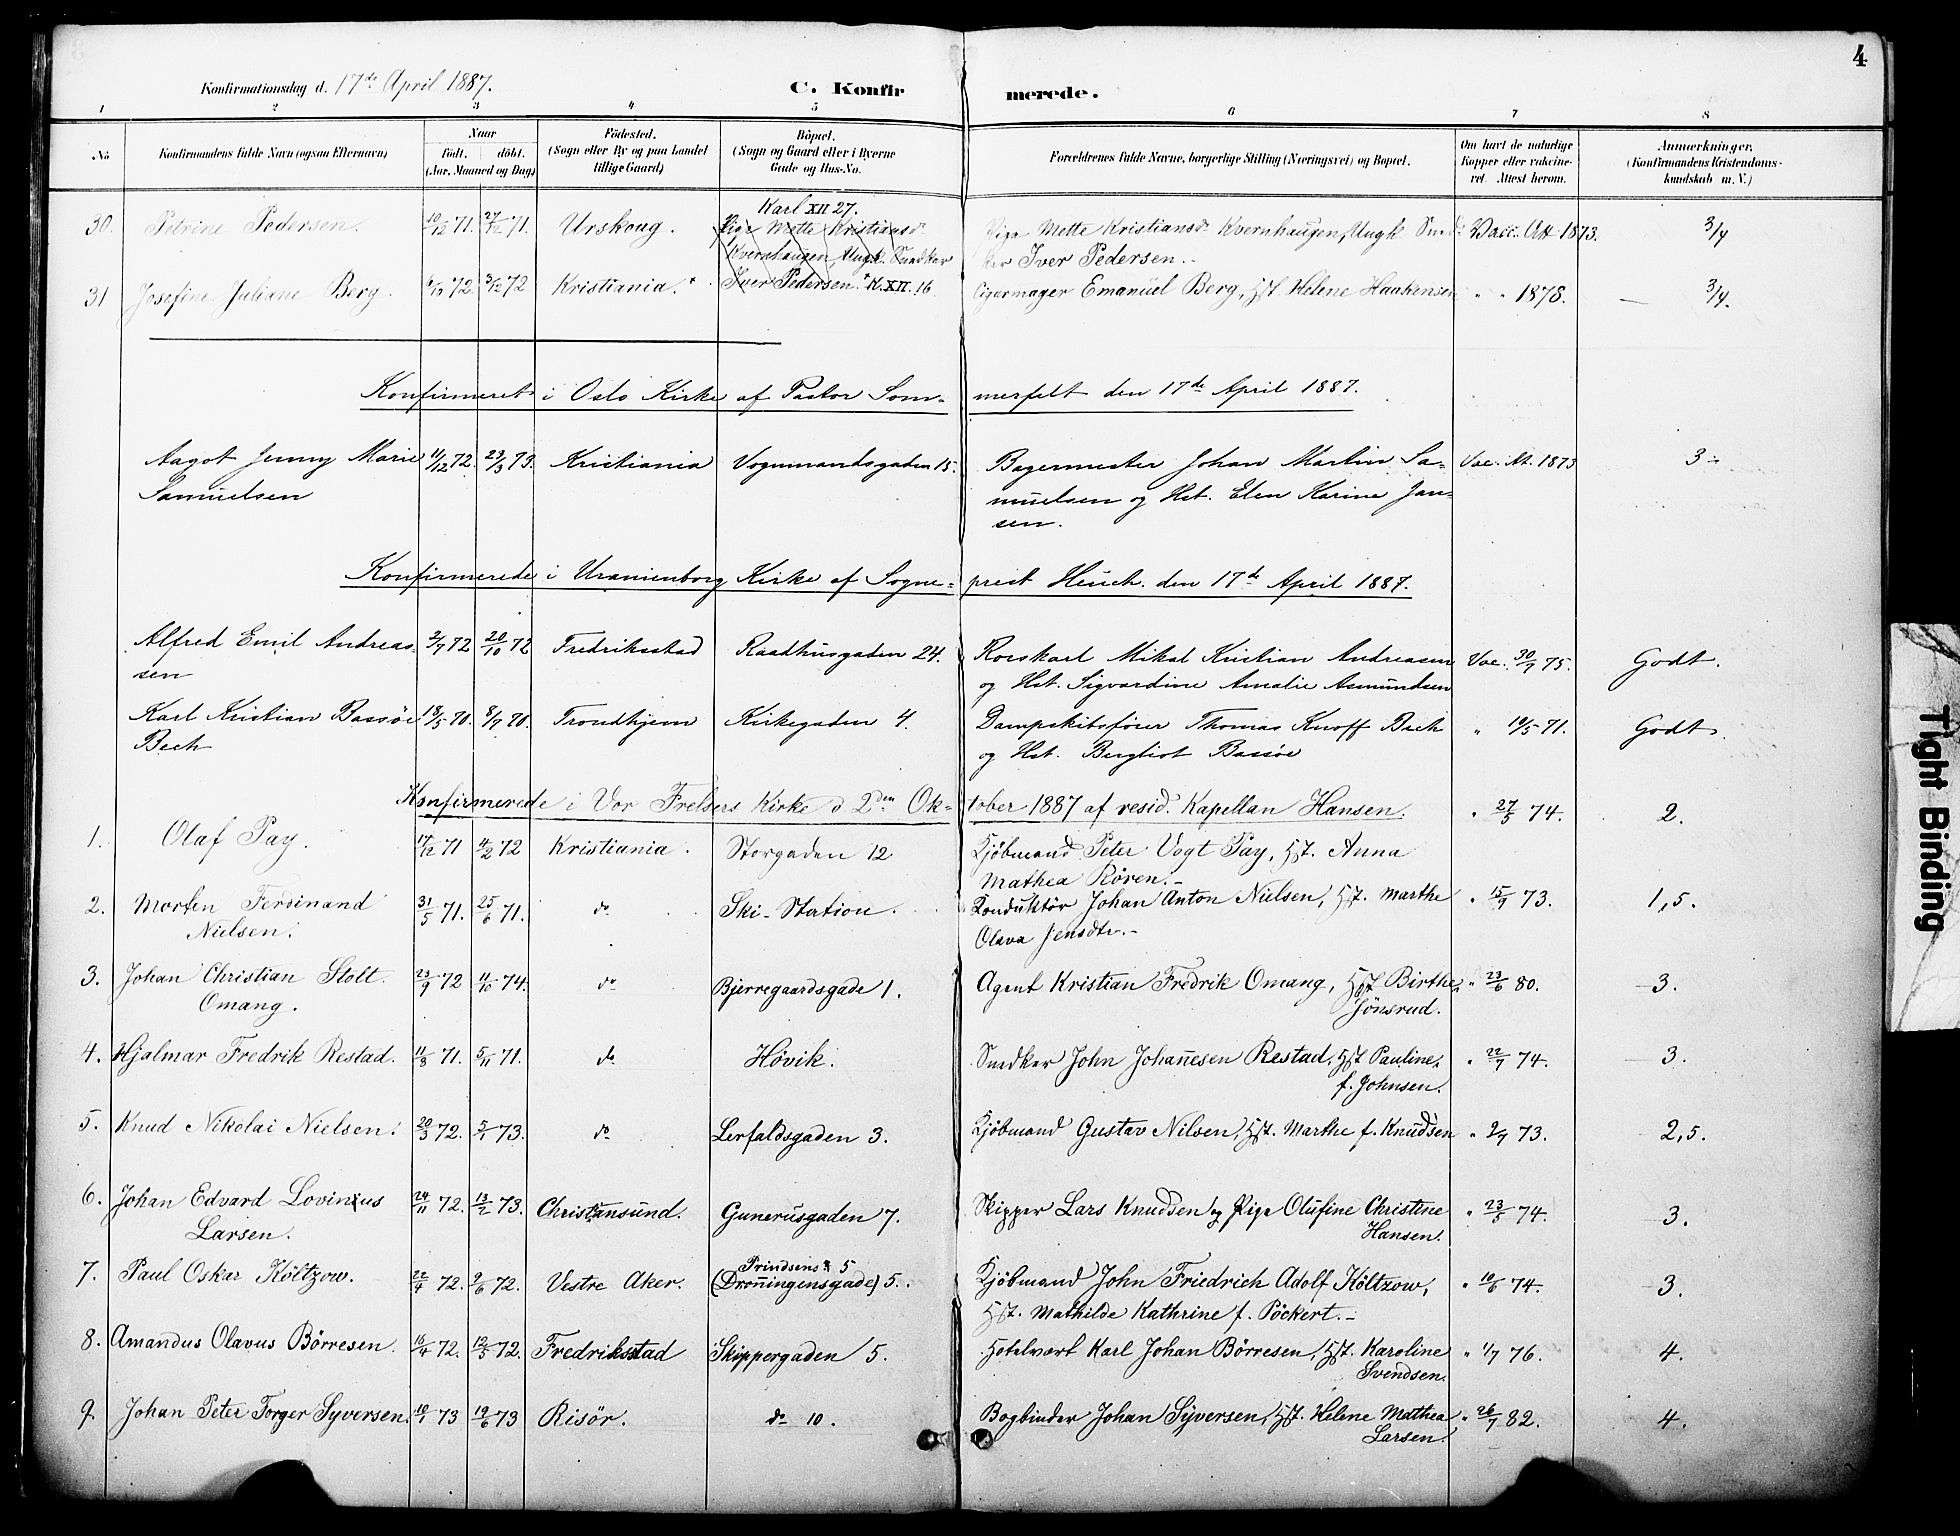 4
Konfirmationsdag d. 17de April 1887. C. Konfirmerede.
1 2 3 4 5 6 7 8
No. Konfirmandens fulde Navn (ogsaa Efternavn) Naar Födt. döbt. (Aar, Maaned og Dag) Födested. (Sogn eller By og paa Landet tillige Gaard) Bopæl. (Sogn og Gaard eller i Byerne Gade og Hus-No. Forældrenes fulde Navne, borgerlige Stilling (Næringsvei) og Bopæl. Om havt de naturlige Kopper eller vaccineret. Attest herom. Anmærkninger. (Konfirmandens Kristendomskundskab m. V.)
Karl XII 27.
30. Petrine Pedersen. 10/12 71. 27/12 71. Urskoug. Pige Mette Kristiansdr Pige Mette Kristiansdr Kvernhaugen, Ungk. Sned- Vacc. Att 1873. 3/4
Kvernhaugen Ungk. Snedker ker Iver Pedersen.
31 Josefine Juliane Berg. 72. 72 Kristiania. Iver Pedersen. K. XII. 16 Cigarmager Emanuel Berg, Hst. Helene Haakensen " " 1878. — 3/4.
Konfirmeret i Oslo Kirke af Pastor Sommerfelt den 17de April 1887.
Aagot Jenny Marie 11/12 72. 23/3 73. Kristiania Vognmandsgaden 15. Bagermester Johan Martin Sa- Vac. At. 1873 3
Samuelsen muelsen og Hst. Elen Karine Jan-
sen.
Konfirmerede i Uranienborg Kirke af Sogneprest Heuch. den 17de April 1887.
Alfred Emil Andreas- 2/7 72 20/10 72 Fredriksstad Raadhusgaden 24. Roerskarl Mikal Kristian Andreasen Vac. 30/7 75. Godt.
sen og Hst. Sigvardine Amalie Asmundsen
Karl Kristian Bassøe 18/5 70. 8/7 70. Trondhjem Kirkegaden 4. Dampskibsfører Thomas Knoff Bech " 10/5 71. Godt.
Bech og Hst. Bergliot Bassøe
Konfirmerede i Vor Frelsers Kirke d 2den Oktober 1887 af resid. Kapellan Hansen. " 27/5 74. 2.
1. Olaf Pay. 17/12 71 4/2 72 Kristiania. Storgaden 12 Kjöbmand Peter Vogt Pay, Hst. Anna
Mathea Rören.
2. Morten Ferdinand 31/5 71. 25/6 71. do Ski-Station. Konduktör Johan Anton Nielsen, Hst. Marthe " 15/9 73. 1,5.
Nielsen. Olava Jensdtr.
3. Johan Christian Stolt. 23/9 72 11/10 74. do Bjerregaardsgade 1. Agent Kristian Fredrik Omang, Hst Birthe " 23/6 80. 3.
Omang. Jönsrud.
4. Hjalmar Fredrik Restad. 11/8 71. 5/11 71. do Hövik. Snedker John Johannesen Restad, Hst Pauline " 22/7 74. 3.
f. Johnsen.
5. Knud Nikolai Nielsen. 20/3 72. 5/1 73. do Lerfaldsgaden 3. Kjöbmand Gustav Nilsen, Hst. Marthe f. Knudsen " 2/7 73. 2,5.
6. Johan Edvard Lovinius 24/11 72. 13/2 73. Christiansund. Gunerusgaden 7. Skipper Lars Knudsen og Pige Olufine Christine " 23/5 74. 3.
Larsen. Hansen.
Prindsens 5
7. Paul Oskar Költzow. 22/4 72. 9/6 72. Vestre Aker. (Dronningensgade) 5. Kjöbmand John Friedrich Adolf Költzow, " 10/6 74. 3.
Hst. Mathilde Kathrine f. Pöckert.
8. Amandus Olavus Börresen. 16/4 72. 12/5 72. Fredriksstad Skippergaden 5. Hotelvært Karl Johan Börresen, Hst. Karoline " 1/7 76. 4.
Svendsen.
9. Johan Peter Torger Syversen. 10/1 73 19/6 73 Risör. do 10. Bogbinder Johan Syversen, Hst. Helene Mathea " 26/7 82. 4.
Larsen.
Tight Binding